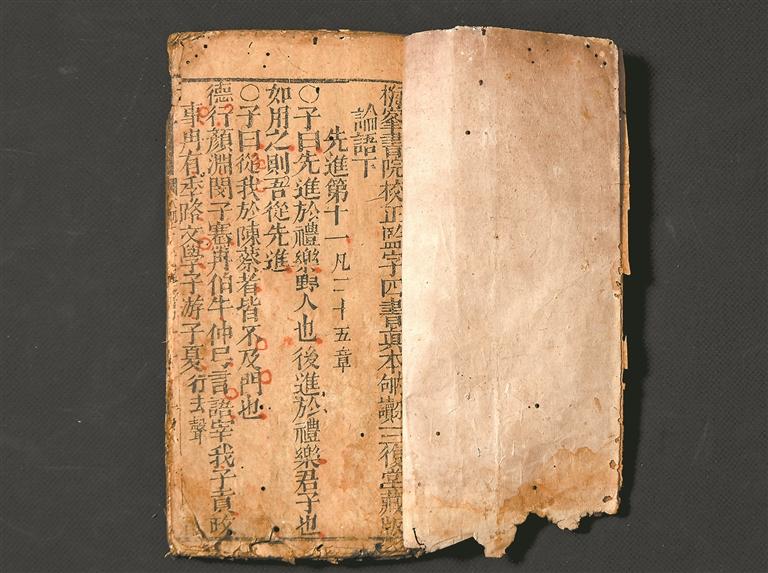 峯書院校正監字四書真本三復堂藏版
論語下
先進第十一 凡二十五章
〇子曰先進於禮樂野人也後進於禮樂君子也
如用之則吾從先進
〇子曰從我於陳蔡者皆不及門也
德行顏淵閔子騫冉伯牛仲弓言語宰我子貢政
事冉有季路文學子游子夏 行去聲